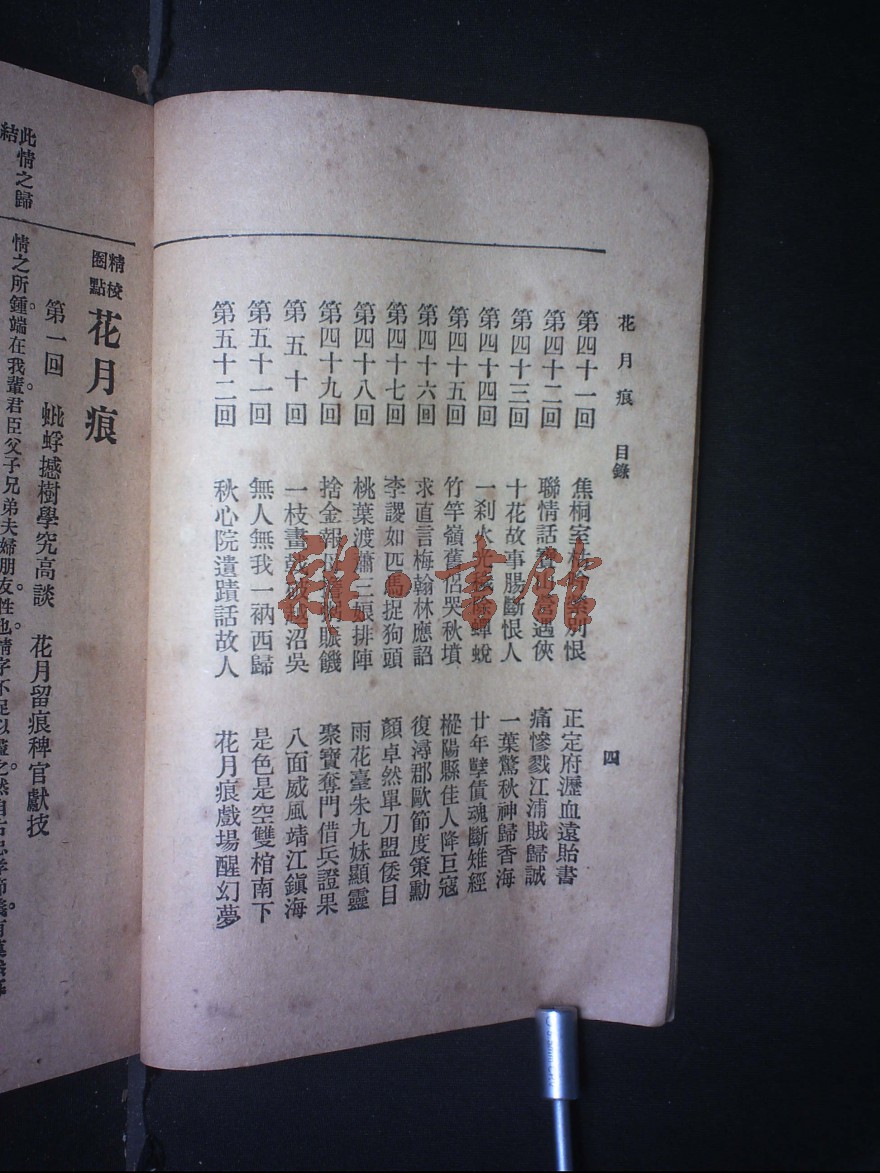 花月痕 目錄 四
第四十一回 焦桐室 別恨 正定府瀝血遠貽書
第四十二回 聯情話寶山營遇俠 痛慘戮江浦賊歸誠
第四十三回 十花故事腸斷恨人 一葉驚秋神歸香海
第四十四回 一刹火光 蟬蛻 廿年孽債魂斷雉經
第四十五回 竹竿嶺舊侶哭秋墳 樅陽縣佳人降巨寇
第四十六回 求直言梅翰林應詔 復潯郡歐節度策勳
第四十七回 李謖如匹馬捉狗頭 顏卓然單刀盟倭目
第四十八回 桃葉渡蕭三娘排陣 雨花臺朱九妹顯靈
第四十九回 捨金報 賑饑 聚寶奪門借兵證果
第五十回 一枝畫戟破越沼吳 八面威風靖江鎮海
第五十一回 無人無我一衲西歸 是色是空雙棺南下
第五十二回 秋心院遺蹟話故人 花月痕戲場醒幻夢
此情之歸
結
精校
圈點
花月痕
第一回 蚍蜉撼樹學究高談 花月留痕稗官獻技
情之所鍾端在我輩。君臣父子兄弟夫婦朋友性也。情字不足以盡之。然自古忠孝節義
雜·書館